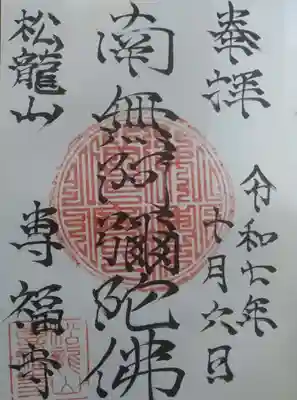 奉拝
令和七年十月六日
南無阿彌陀佛
松龍山
専福寺